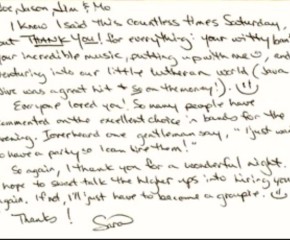 Jason, Jim & Mo
I know I said this countless times Saturday,
but THANK YOU! for everything: your witty
your incredible music, putting up with me ☺, and
venturing into our little Lutheran world (Java
Jive was a great hit & so on the money!). ☺
Everyone loved you! So many people have
commented on the excellent choice in bands for the
evening. I overheard one gentleman say, "I just want
to have a party so I can hire them!"
So again, I thank you for a wonderful night.
I hope to sweet talk the higher ups into hiring you
again. If not, I'll just have to become a groupie. ☺
Thanks!